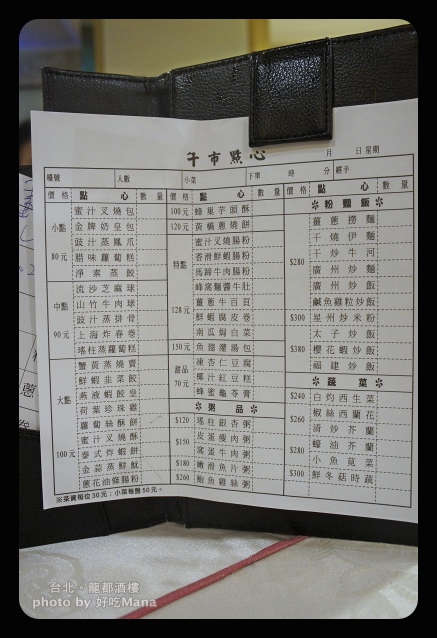 午市點心
月 日 星期
檯號 人數 小菜 下單 時 分 經手
價格 點心 數量 價格 點心 數量 價格 點心 數量
小點
80元
蜜汁叉燒包
金牌奶皇包
豉汁蒸鳳爪
腊味蘿蔔糕
淨素蒸餃
中點
90元
流沙芝麻球
山竹牛肉球
豉汁蒸排骨
上海炸春卷
瑤柱蒸蘿蔔糕
大點
100元
蟹黃蒸燒賣
鮮蝦韭菜餃
燕液蝦餃皇
荷葉珍珠雞
蘿蔔絲酥餅
蜜汁叉燒酥
泰式炸蝦餅
金蒜蒸鮮魷
蔥花油條腸粉
※茶資每位30元；小菜每盤50元。
100元 蜂巢芋頭酥
120元 黃橋蔥燒餅
特點
128元
蜜汁叉燒腸粉
香滑鮮蝦腸粉
馬蹄牛肉腸粉
蜂窩麵醬牛肚
薑蔥牛百頁
鮮蝦腐皮卷
南瓜焗白菜
150元 魚翅灌湯包
甜品
70元
凍杏仁豆腐
椰汁紅豆糕
蜂蜜龜苓膏
※粥品※
$120 瑤柱銀杏粥
$150 皮蛋瘦肉粥
窩蛋牛肉粥
$180 嫩滑魚片粥
$260 鮑魚雞絲粥
※粉麵飯※
$280
薑蔥撈麵
干燒伊麵
干炒牛河
廣州炒麵
廣州炒飯
鹹魚雞粒炒飯
$300 星州炒米粉
太子炒飯
$380 櫻花蝦炒飯
福建炒飯
※蔬菜※
$240 白灼西生菜
$260 椒絲西蘭花
清炒芥蘭
$280 蠔油芥蘭
小魚莧菜
$300 鮮冬菇時蔬
台北。龍都酒樓
photo by 好吃Mana